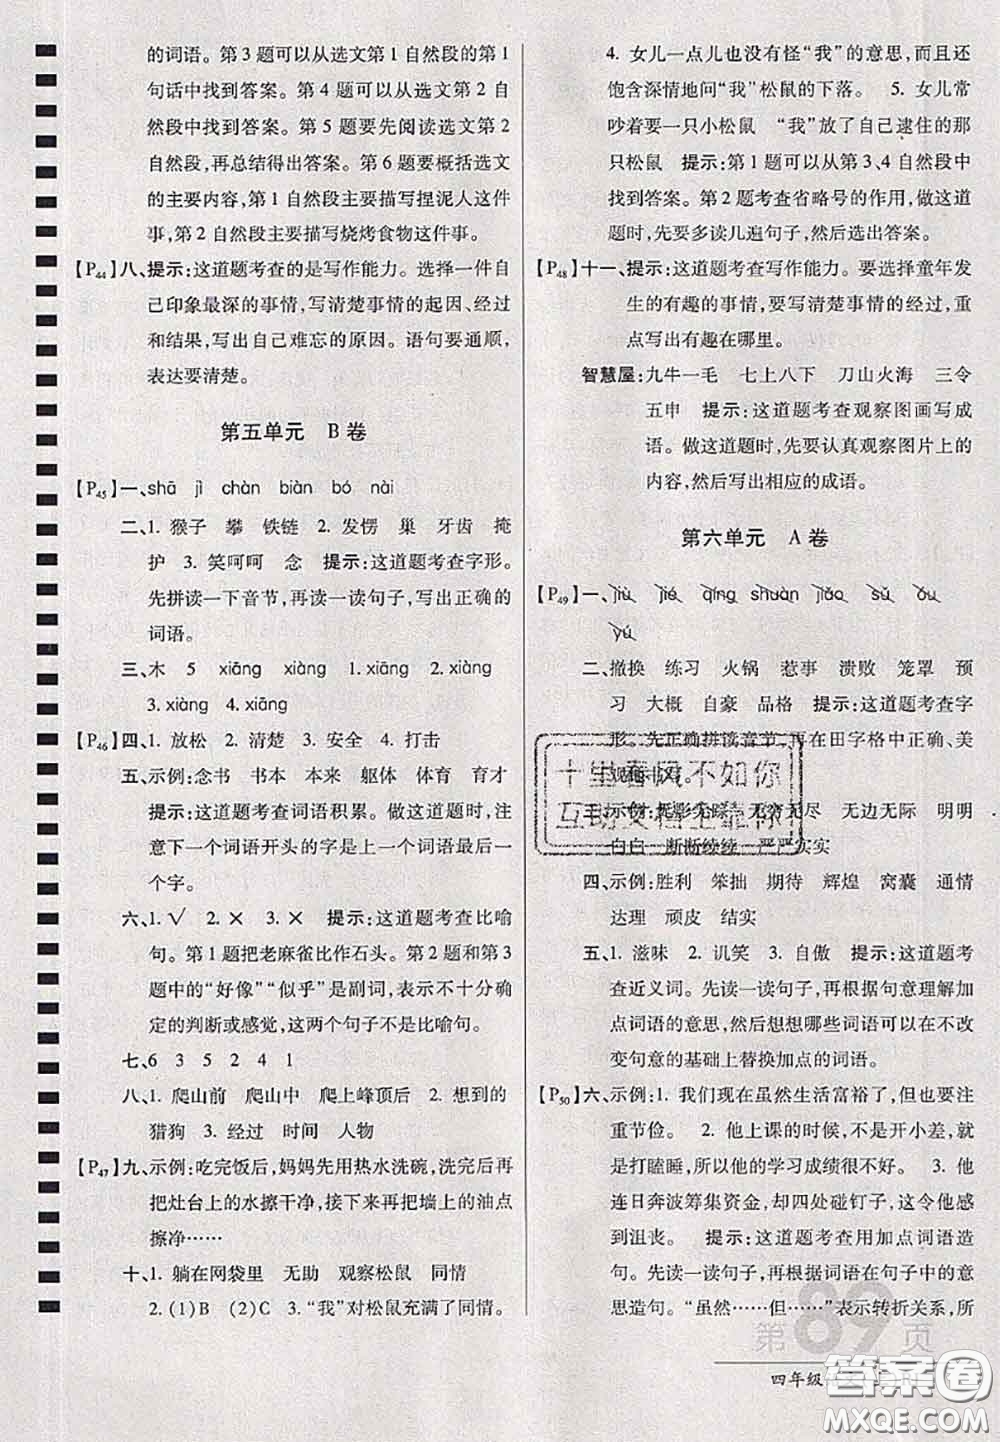 的词语。第3题可以从选文第1自然段的第1
句话中找到答案。第4题可以从选文第2自
然段中找到答案。第5题要先阅读选文第2
自然段,再总结得出答案。第6题要概括选文
的主要内容,第1自然段主要描写捏泥人这件
事,第2自然段主要描写烧烤食物这件事。
【P44】八、提示:这道题考查的是写作能力。选择一件自
己印象最深的事情,写清楚事情的起因、经过
和结果,写出自己难忘的原因。语句要通顺,
表达要清楚。
第五单元 B卷
【P45】一、shā jì chàn biàn bó nài
二、1. 猴子 攀 铁链 2. 发愣 巢 牙齿 掩
护 3. 笑呵呵 念 提示:这道题考查字形。
先拼读一下音节,再读一读句子,写出正确的
词语。
三、木 5 xiāng xiàng 1. xiāng 2. xiàng
3. xiàng 4. xiāng
【P46】四、1. 放松 2. 清楚 3. 安全 4. 打击
五、示例:念书 书本 本来 躯体 体育 育才
提示:这道题考查词语积累。做这道题时,
注意下一个词语开头的字是上个词语最后一
个字。
六、1. √ 2. × 3. × 提示:这道题考查比喻
句。第1题把老麻雀比作石头。第2题和第3
题中的“好像”“似乎”是副词,表示不十分确
定的判断或感觉,这两个句子不是比喻句。
七、6 3 5 2 4 1
八、1. 爬山前 爬山中 爬上峰顶后 2. 想到的
猎狗 3. 经过 时间 人物
【P47】九、示例:吃完饭后,妈妈先用热水洗碗,洗完后再
把灶台上的水擦干净,接下来再把墙上的油点
擦净……
十、1. 躺在网袋里 无助 观察松鼠 同情
2. (1)B (2)C 3. “我”对松鼠充满了同情。
4. 女儿一点儿也没有怪“我”的意思,而且还
饱含深情地问“我”松鼠的下落。 5. 女儿常
吵着要一只小松鼠 “我”放了自己逮住的那
只松鼠 提示:第1题可以从第3、4自然段中
找到答案。第2题考查省略号的作用,做这道
题时,先要多读几遍句子,然后选出答案。
【P48】十一、提示:这道题考查写作能力。要选择童年发
生的有趣的事情,要写清楚事情的经过,重
点写出有趣在哪里。
智慧屋:九牛一毛 七上八下 刀山火海 三令
五申 提示:这道题考查观察图画写成
语。做这道题时,先要认真观察图片上的
内容,然后写出相应的成语。
第六单元 A卷
【P49】一、jiù jié qíng shuàn jiǎo sǔ ǒu
yú
二、撤换 练习 火锅 惹事 溃败 笼罩 预
习 大概 自豪 品格 提示:这道题考查字
形。先正确拼读音节,再在田字格中正确、美
三、示例:无影无踪 无穷无尽 无边无际 明明
白白 断断续续 严严实实
四、示例:胜利 笨拙 期待 辉煌 窝囊 通情
达理 顽皮 结实
五、1. 滋味 2. 讥笑 3. 自傲 提示:这道题考
查近义词。先读一读句子,再根据句意理解加
点词语的意思,然后想想哪些词语可以在不改
变句意的基础上替换加点的词语。
【P50】六、示例:1. 我们现在虽然生活富裕了,但还是要注
重节俭。 2. 他上课的时候,不是开小差,就
是打瞌睡,所以他的学习成绩很不好。 3. 他
连日奔波筹集资金,却四处碰钉子,这令他感
到沮丧。 提示:这道题考查用加点词语造
句。先读一读句子,再根据词语在句子中的意
思造句。“虽然……但……”表示转折关系,所
十里春风不如你
第89页
四年级
答案圈
MXQE.COM